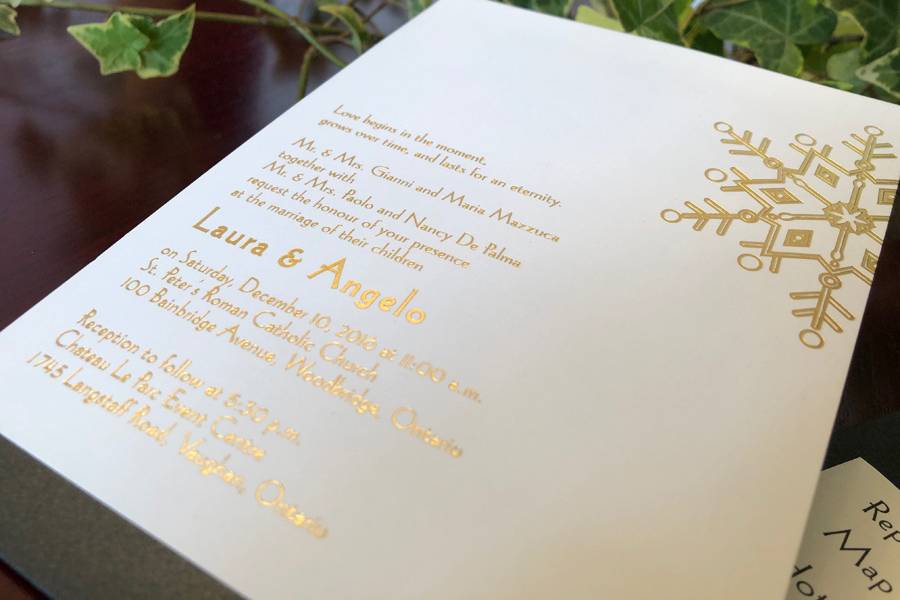 Love begins in the moment,
grows over time, and lasts for an eternity.
Mr. & Mrs. Gianni and Maria Mazzuca
together with,
Mr. & Mrs. Paolo and Nancy De Palma
request the honour of your presence
at the marriage of their children
Laura & Angelo
on Saturday, December 10, 2016 at 11:00 a.m.
St. Peter's Roman Catholic Church
100 Bainbridge Avenue, Woodbridge, Ontario
Reception to follow at 5:30 p.m.
Chateau Le Parc Event Centre
1745 Langstaff Road, Vaughan, Ontario
Rep
Map
Hot